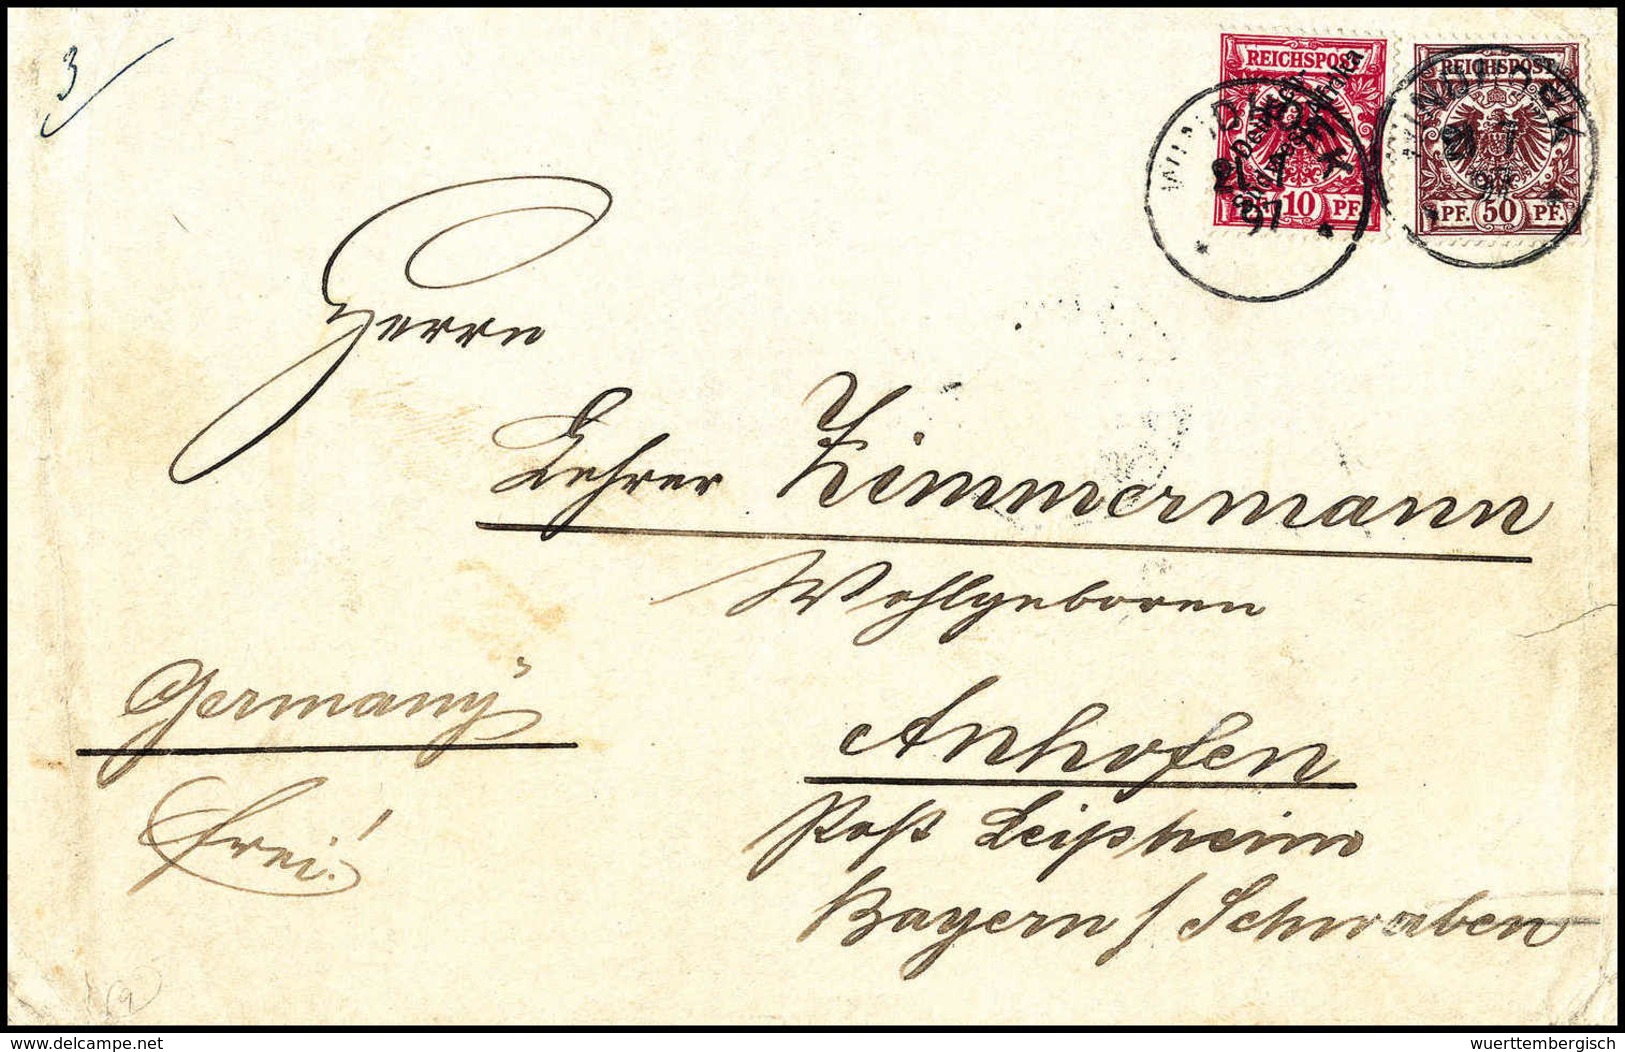 3
REICHSPOST
10 PF.
REICHSPOST
PF. 50 PF.
WINDHOEK
21 7
97
WINDHOEK
Herrn
Lehrer Zimmermann
Wohlgeboren
Germany
Frei!
Anhofen
Post Leipheim
Bayern / Schwaben
delcampe.net
wuerttembergisch